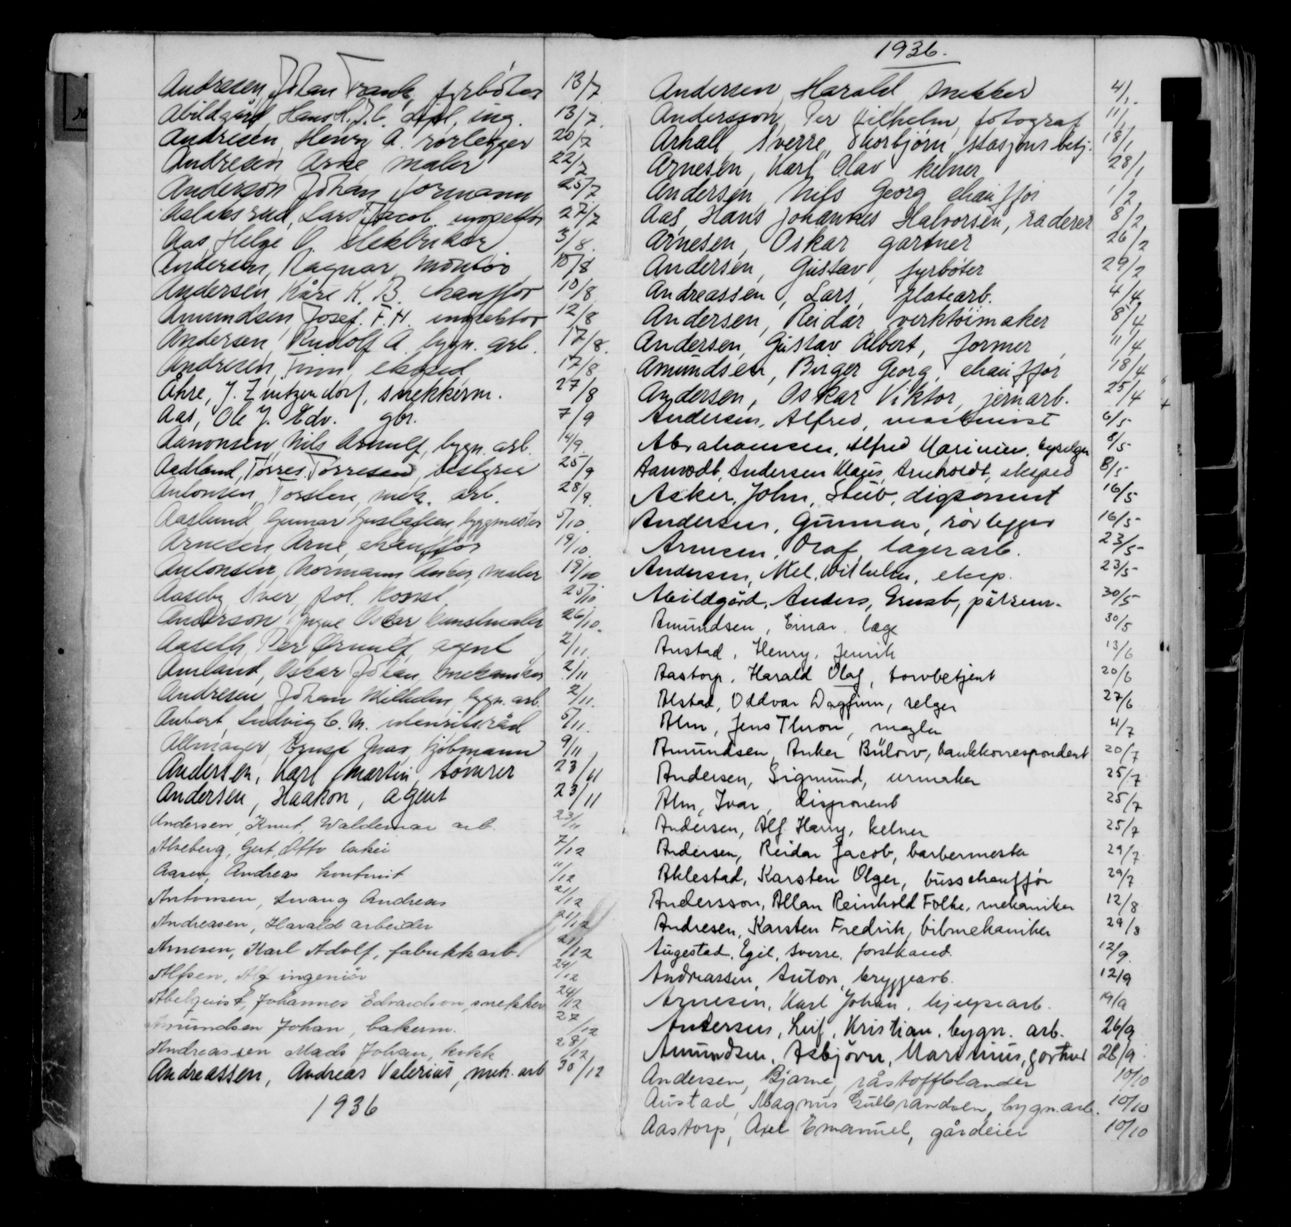 Andresen, Johan Frank, fyrbøter 13/7
Abildgård, Hans H. J. C. dipl. ing. 13/7
Andresen, Henry A. rørlegger 20/7
Andresen Arne maler 22/7
Anderson Johan formann 25/7
Lars Jacob inspektør 27/7
Aas, Helge O. elektriker 3/8
Andersen, Ragnar, montør 10/8
Andersen, Kåre K. B. chauffør 10/8
Amundsen Josef F. H. inspektør 12/8
Andersen Rudolf A. bygn. arb. 17/8
Andresen, Finn eksped 17/8
Åhre, J. Zintzendorf, snekkerm. 27/8
Aas, Ole J. Edv. gbr. 7/9
Aanonsen, Nils Arnulf, bygn. arb. 14/9
Aadland, Torres Torresen 25/9
Antonsen, Torsten, mek. arb. 28/9
Aaslund, Gunnar Gustafsen, byggmester 5/10
Arnesen Arne chauffør 19/10
Antonsen, Normann maler 19/10
Aaseby, Iver, pol. konst. 25/10
Anderson, Yngve Oscar kunstmaler 26/10
Aaseth, Per Ørnulf, agent 2/11
Amland, Oscar Johan, mekaniker 2/11
Andresen Johan Wilhelm, bygn. arb. 2/11
Aubert Ludvig C. M. 5/11
Allmayer Ernst kjøbmann 9/11
Andersen, Karl Martin tømrer 23/11
Andersen, Haakon, agent 23/11
Andersen, Knut, Waldemar arb. 23/11
Alseberg, Gert, Otto lakei 7/12
Aasen, Andreas kontorist 11/12
Antonsen, Svang Andreas 21/12
Andreasen, Harald arbeider 21/12
Arnesen, Karl Adolf, fabrikkarb. 21/12
Alfsen, Alf ingeniør 24/12
Abelquist, Johannes Edvardson, snekker 24/12
Amundsen Johan, bakerm. 27/12
Andreassen Mads Johan, kokk 28/12
Andreassen, Andreas Valerius, mek. arb 30/12
1936
1936.
Andersen Harald snekker 4/1
Andersson, Per Vilhelm, fotograf 11/1
Arhall, Sverre, Thorbjørn, stasjonsbetj. 18/1
Arnesen, Karl Olav kelner 28/1
Andersen Nils Georg chauffør 1/2
Aas Hans Johannes Halvorsen, raderer 8/2
Arnesen, Oskar gartner 26/2
Andersen, Gustav, fyrbøter 29/2
Andreassen, Lars, platearb. 4/4
Andersen, Reidar verktøimaker 8/4
Andersen, Gustav Albert, former 11/4
Amundsen, Birger Georg, chauffør 18/4
Andersen, Oskar Viktor, jernarb. 25/4
Andersen, Alfred, maskinist 6/5
Abrahamsen, Alfred Marinius, 8/5
Aamodt, Andersen Magus, Arnholdt, eksped 8/5
Asker, John, Stub, disponent 16/5
Andersen, Gunnar, rørlegger 16/5
Arnesen, Olaf, lagerarb. 23/5
Andersen, Nel, Wilhelm, eksp. 23/5
Abildgård, Anders, Ernst, pølsem. 30/5
Amundsen, Einar, læge 30/5
Anstad, Henry, Jenrik 13/6
Aastorp, Harald Olaf, torvbetjent 20/6
Alstad, Oddvar Dagfinn, selger 27/6
Alm, Jens Thron, megler 4/7
Amundsen, Anker Bülow, bankkorrespondent 20/7
Andersen, Sigmund, urmaker 25/7
Alm, Ivar, disponent 25/7
Andersen, Alf Harry, kelner 25/7
Andersen, Reidar Jacob, barbermester 29/7
Ahlestad, Karsten Olger, busschauffør 29/7
Andersson, Allan Reinhold Folke, mekaniker 12/8
Andresen, Karsten Fredrik, bilmekaniker 29/8
Augestad, Egil, Sverre, forstkand. 12/9
Andreassen, Anton, bryggearb. 12/9
Arnesen, Karl Johan, hjelpearb. 19/9
Andersen, Leif, Kristian, bygn. arb. 26/9
Amundsen, Asbjørn, Martinius, 28/9
Andersen, Bjarne, råstoffblander 10/10
Austad, Magnus Gulbrandsen, bygn.arb. 10/10
Aastorp, Axel Emanuel, gårdeier 10/10